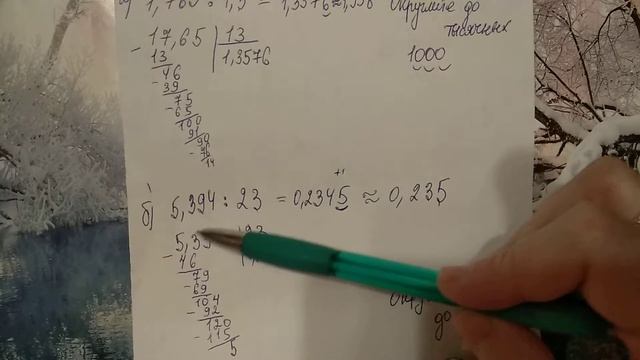 1,3576 ≈ 1,358 Округлите до
тысячных
- 17,65 | 13
13 | 1,3576
- 46
39
- 75
- 65
100
91
- 90
78
14
1000
б) 5,394 : 23 = 0,2345 ≈ 0,235
+1
- 5,39
46
79
- 69
104
- 92
120
- 115
5
до